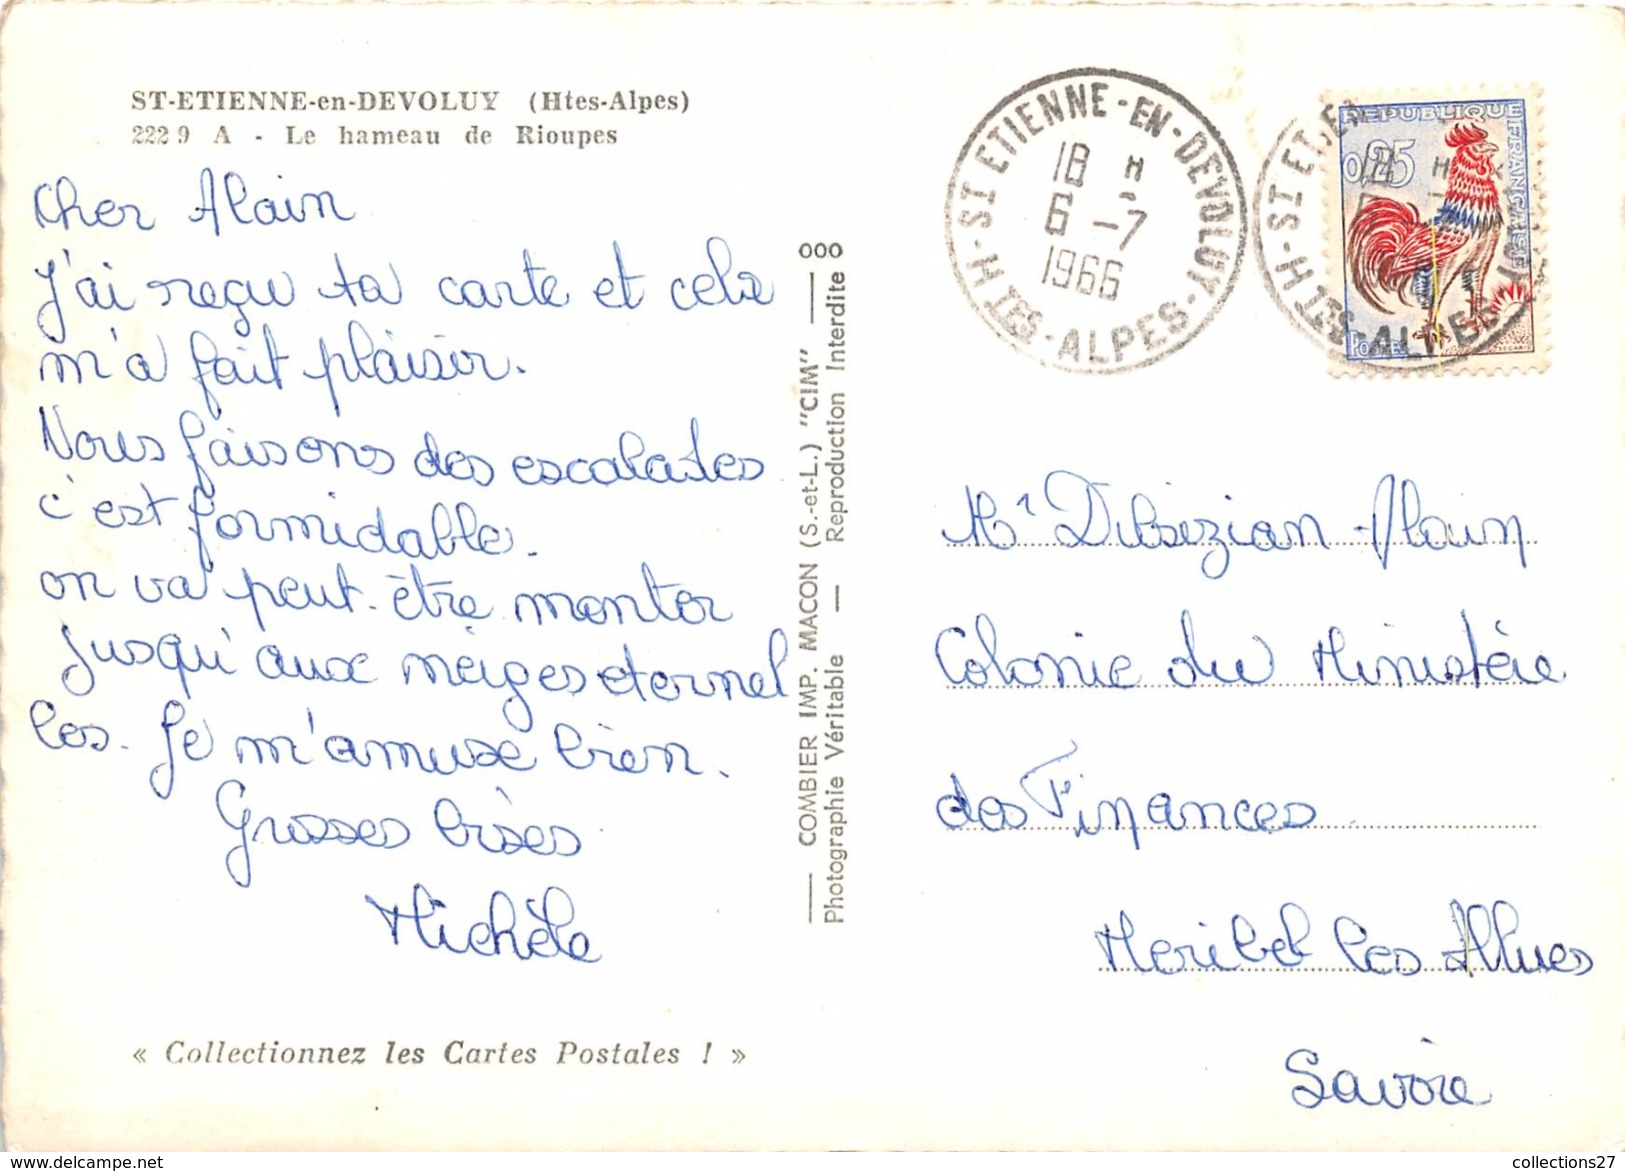 ST-ETIENNE-en-DEVOLUY (Htes-Alpes)
222 9 A - Le hameau de Rioupes
Cher Alain
J'ai reçu ta carte et cela
m'a fait plaisir.
Nous faisons des escalades
c'est formidable.
on va peut-être monter
jusqu'aux neiges eternel
les. Je m'amuse bien.
Grosses bises
Michèle
« Collectionnez les Cartes Postales ! »
COMBIER IMP. MACON (S.-et-L.) "CIM"
Photographie Véritable — Reproduction Interdite
000
ST ETIENNE-EN-DEVOLUY
18 H
6 -7
1966
HTES-ALPES
REPUBLIQUE FRANÇAISE
0,25
POSTES
Mr Dilsizian Alain
Colonie du Ministère
des Finances
Meribel les Allues
Savoie
collections27